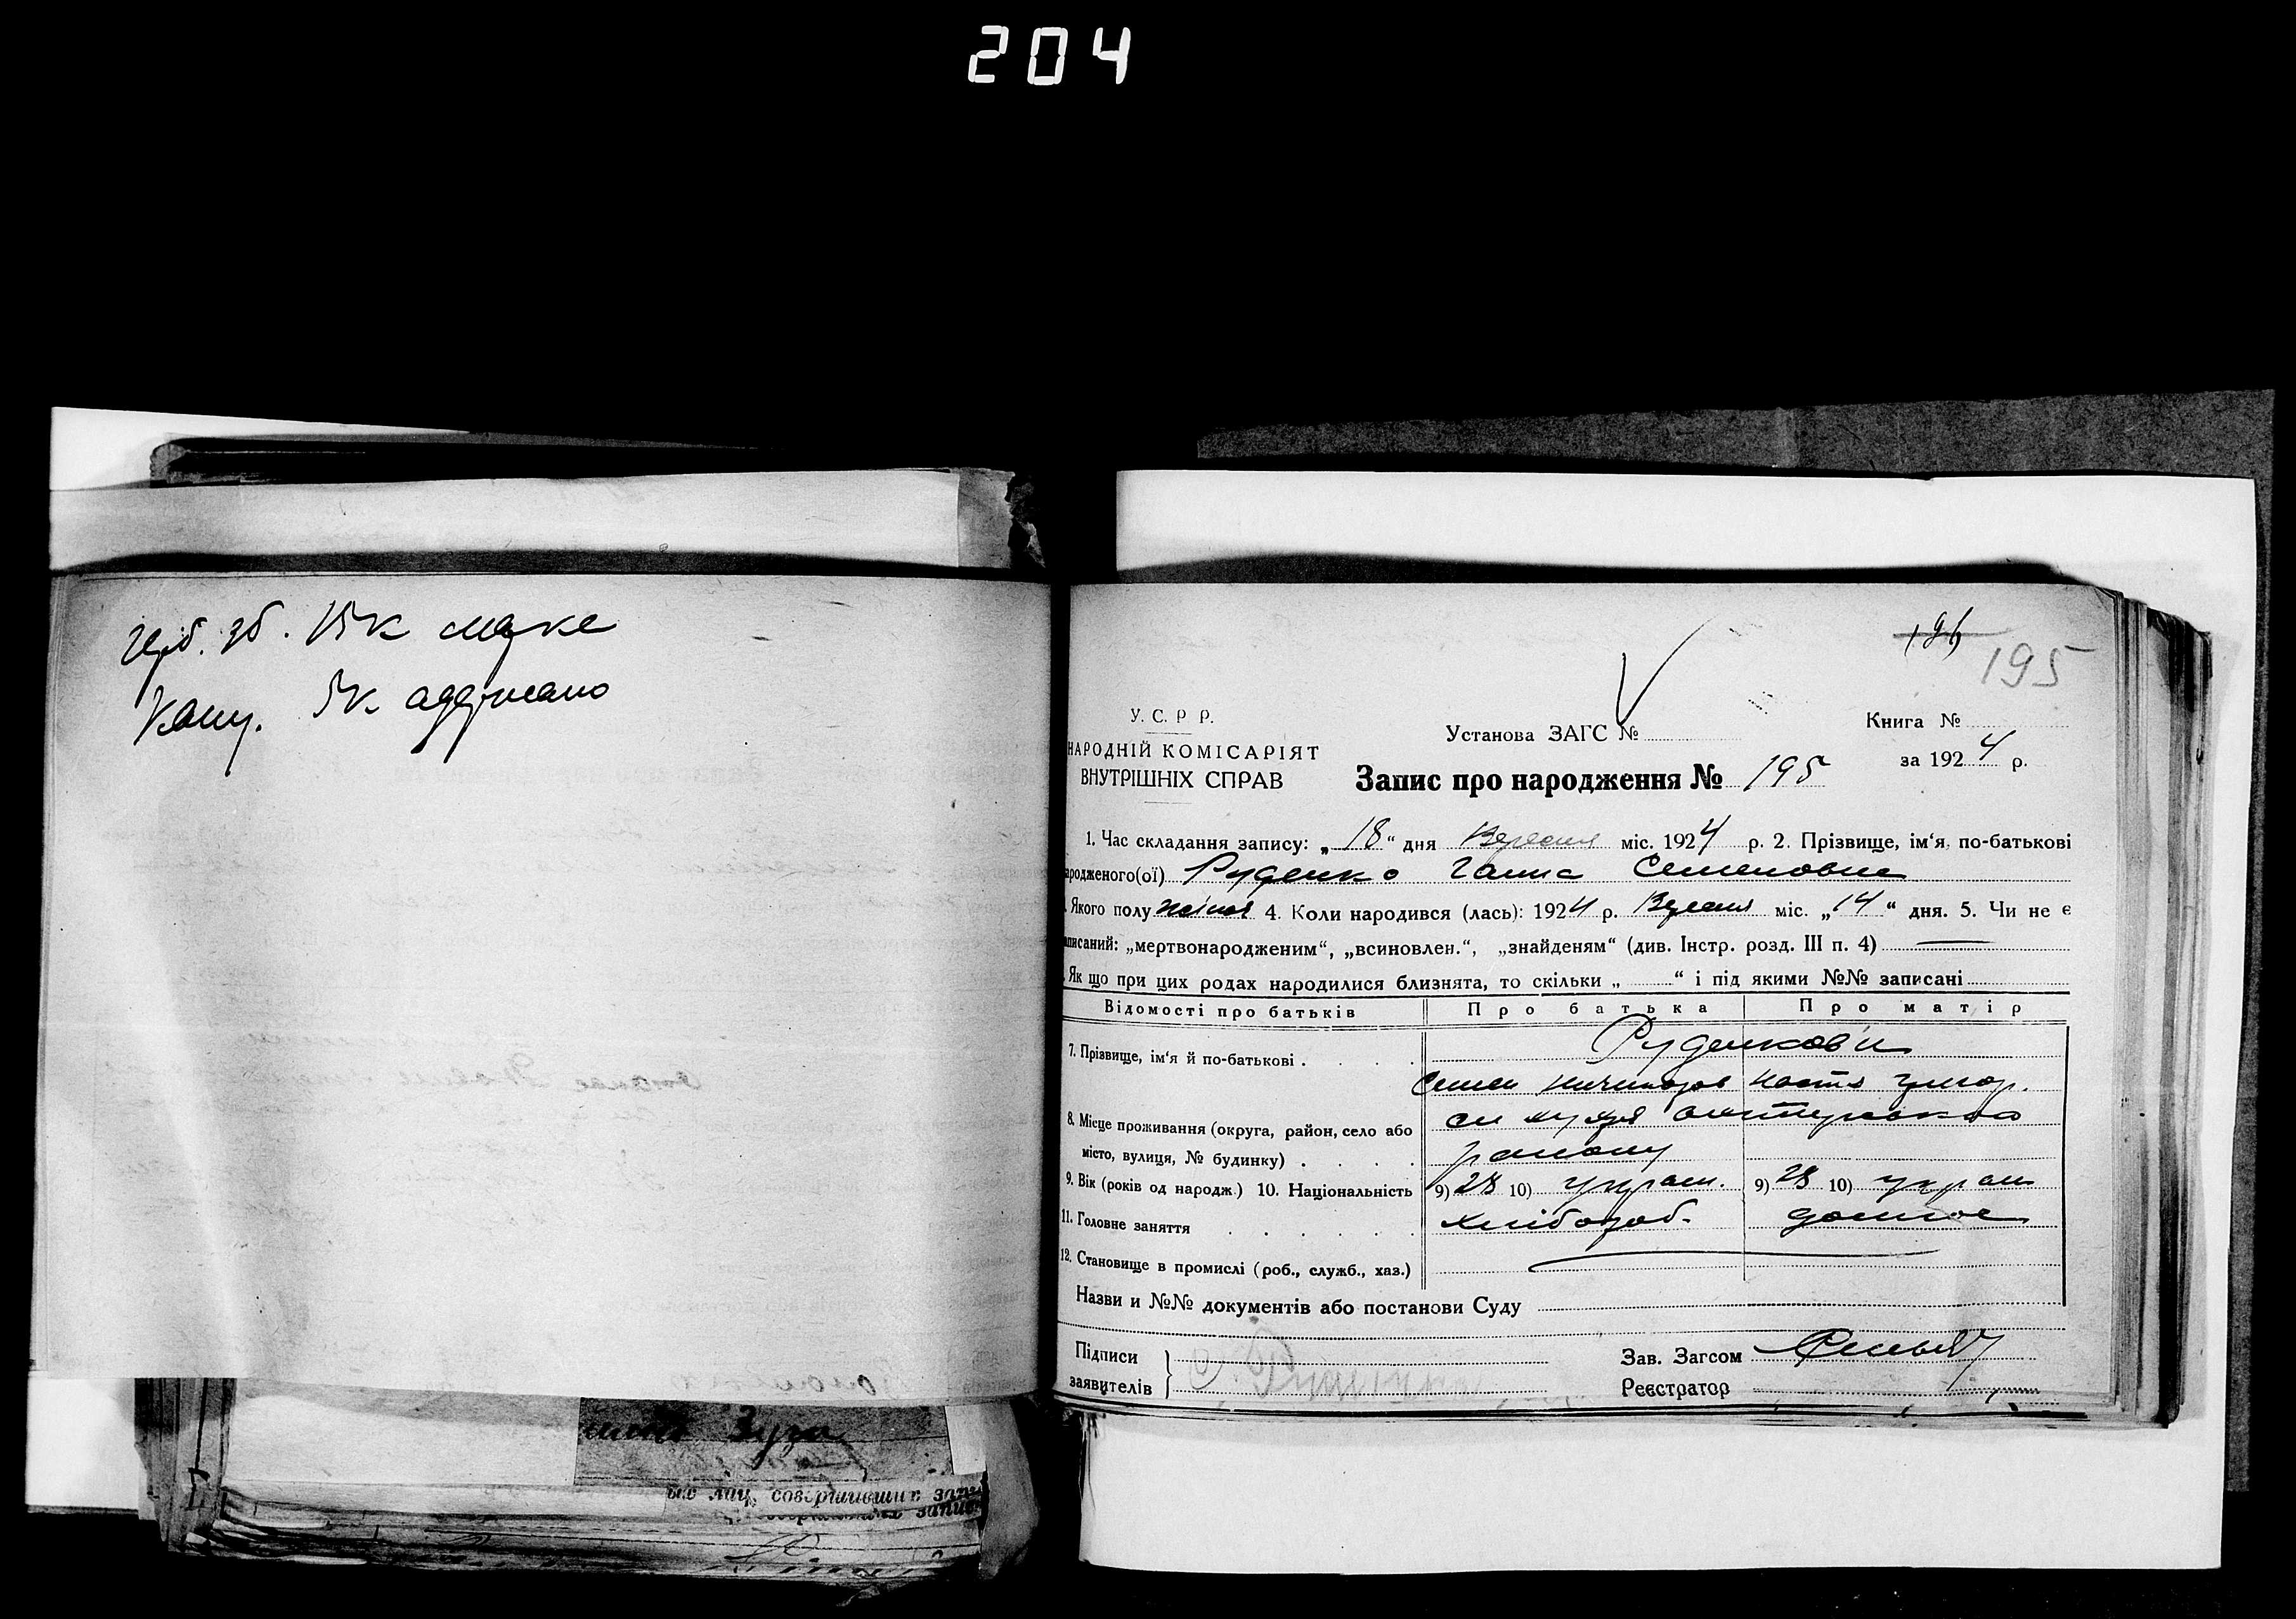 204
герб. зб. 15к марке
Канц. 5к одержано
195
У. С. Р Р.
НАРОДНІЙ КОМІСАРІЯТ
ВНУТРІШНІХ СПРАВ
Установа ЗАГС №
Книга №
за 1924 р.
Запис про народження № 195
1. Час складання запису: „18“ дня Вересня міс. 1924 р. 2. Прізвище, ім‘я, по-батькові
ародженого(ої) Руденко Ганна Семеновна
Якого полу жіноч 4. Коли народився (лась): 1924 р. Вересня міс. „14“ дня. 5. Чи не є
аписаний: „мертвонародженим“, „всиновлен.“, „знайденям“ (див. Інстр. розд. III п. 4) —
Як що при цих родах народилися близнята, то скільки „ “ і під якими №№ записані
Відомості про батьків Про батька Про матір
7. Прізвище, ім‘я й по-батькові . . . . Руденкови
Семен Ничипоров Настя Григор.
8. Місце проживання (округа, район, село або
місто, вулиця, № будинку) . . . . району
9. Вік (років од народж.) 10. Національність 9) 28 10) україн. 9) 28 10) україн
11. Головне заняття . . . . . . хлібороб. домаш
12. Становище в промислі (роб., служб., хаз.)
Назви и №№ документів або постанови Суду
Підписи
заявителів
Зав. Загсом
Реєстратор
Зуза
лиц, совершивших запи